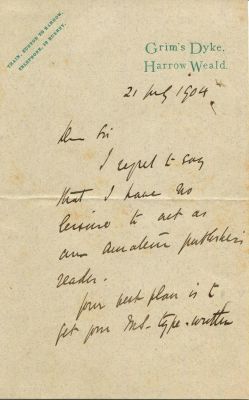 TRAIN, EUSTON TO HARROW.
TELEPHONE, 19 BUSHEY.
Grim's Dyke,
Harrow Weald.
21 July 1904
Dear Sir
I regret to say
that I have no
leisure to act as
an amateur publisher's
reader.
Your best plan is to
get your MS. type-written